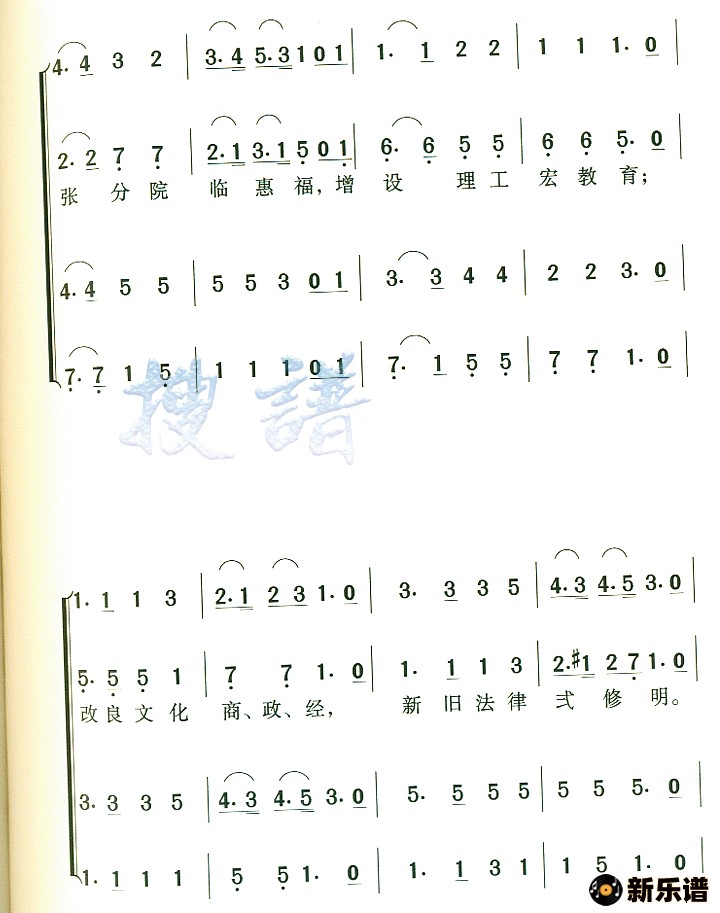 4. 4 3 2 | 3. 4 5. 3 1 0 1 | 1. 1 2 2 | 1 1 1. 0 |
2. 2 7 7 | 2. 1 3. 1 5 0 1 | 6. 6 5 5 | 6 6 5. 0 |
张 分 院 临 惠 福，增 设 理 工 宏 教 育；
4. 4 5 5 | 5 5 3 0 1 | 3. 3 4 4 | 2 2 3. 0 |
7. 7 1 5 | 1 1 1 0 1 | 7. 1 5 5 | 7 7 1. 0 |
搜 谱
1. 1 1 3 | 2. 1 2 3 1. 0 | 3. 3 3 5 | 4. 3 4. 5 3. 0 |
5. 5 5 1 | 7 7 1. 0 | 1. 1 1 3 | 2. #1 2 7 1. 0 |
改 良 文 化 商、政、经， 新 旧 法 律 弍 修 明。
3. 3 3 5 | 4. 3 4. 5 3. 0 | 5. 5 5 5 | 5 5 5. 0 |
1. 1 1 1 | 5 5 1. 0 | 1. 1 3 1 | 1 5 1. 0
新乐谱